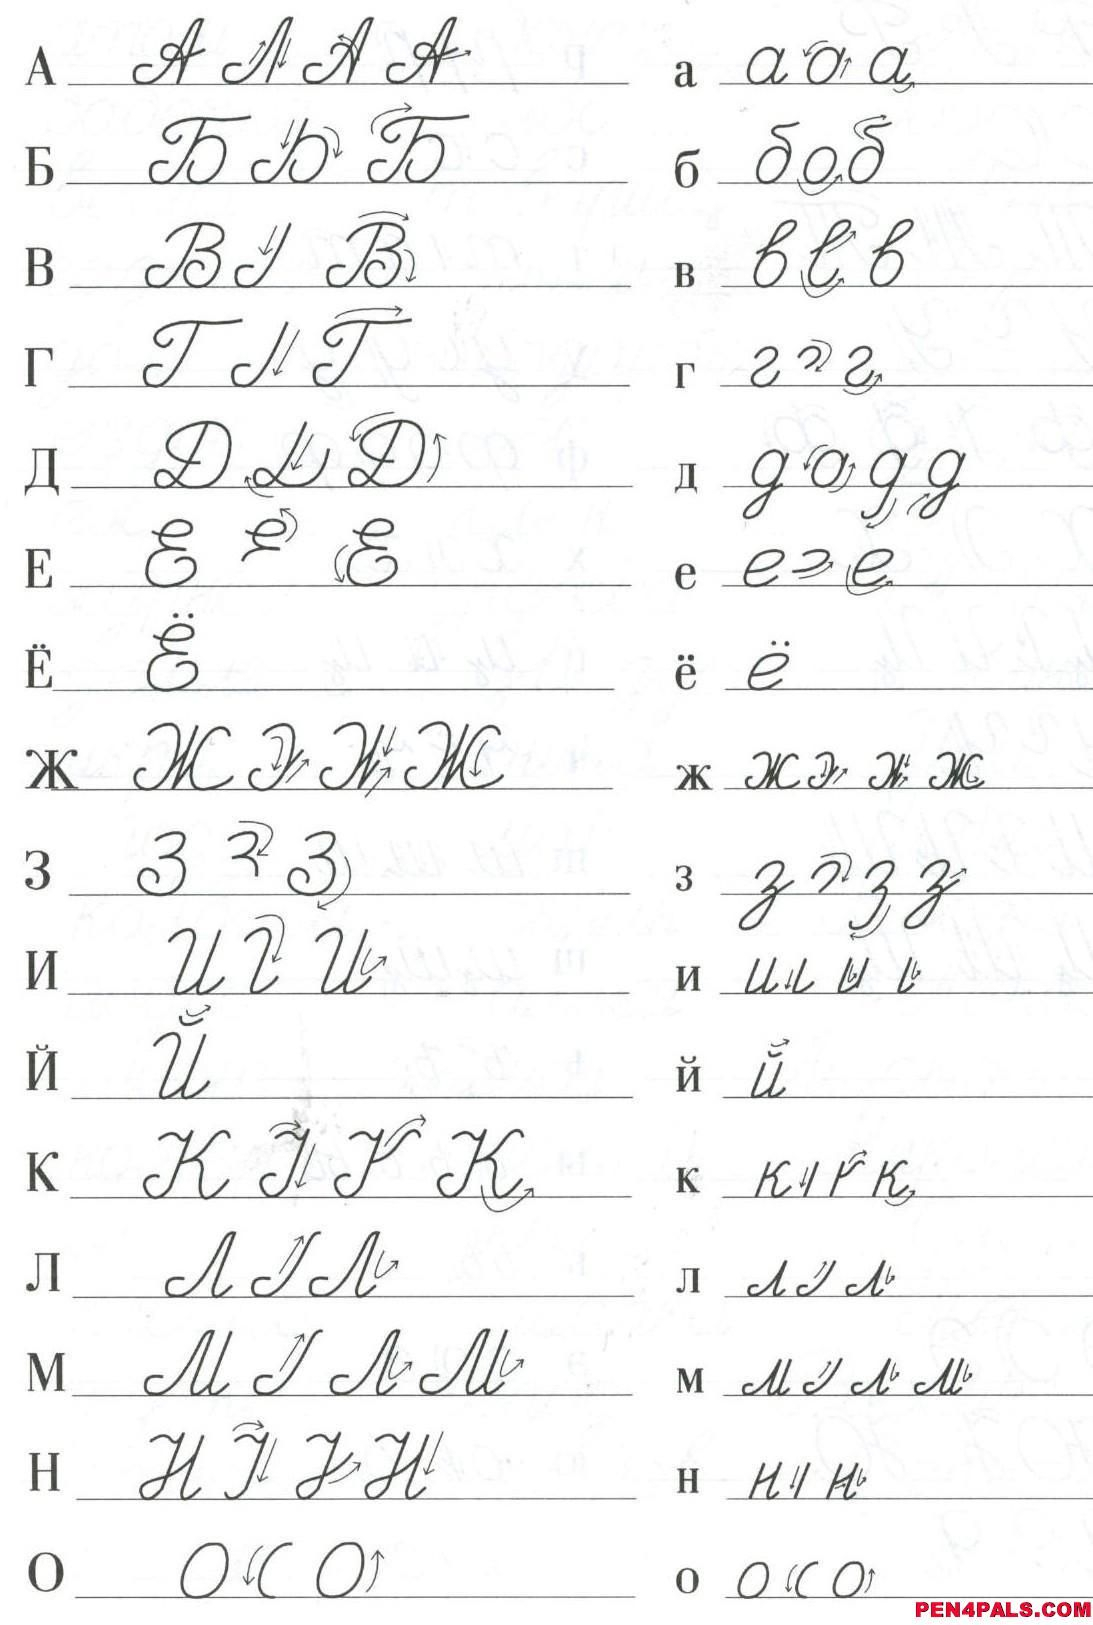 А А А А а а а
Б Б Б б б б
В В В в в в
Г Г Г г г г
Д Д Д д д д
Е Е Е е е е
Ё Ё ё ё
Ж Ж Ж ж ж ж
З З З з з з
И И И и и и
Й Й й й
К К К к к к
Л Л Л л л л
М М М м м м
Н Н Н н н н
О О О о о о
PEN4PALS.COM